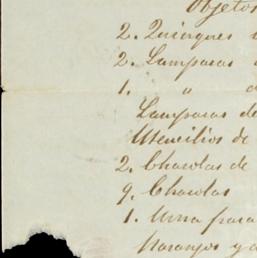 Objetos
2. Quinques
2. Lamparas
1. "
Lamparas de
Utencilios de
2. Charolas de
9. Charolas
1. Urna para
naranjos y